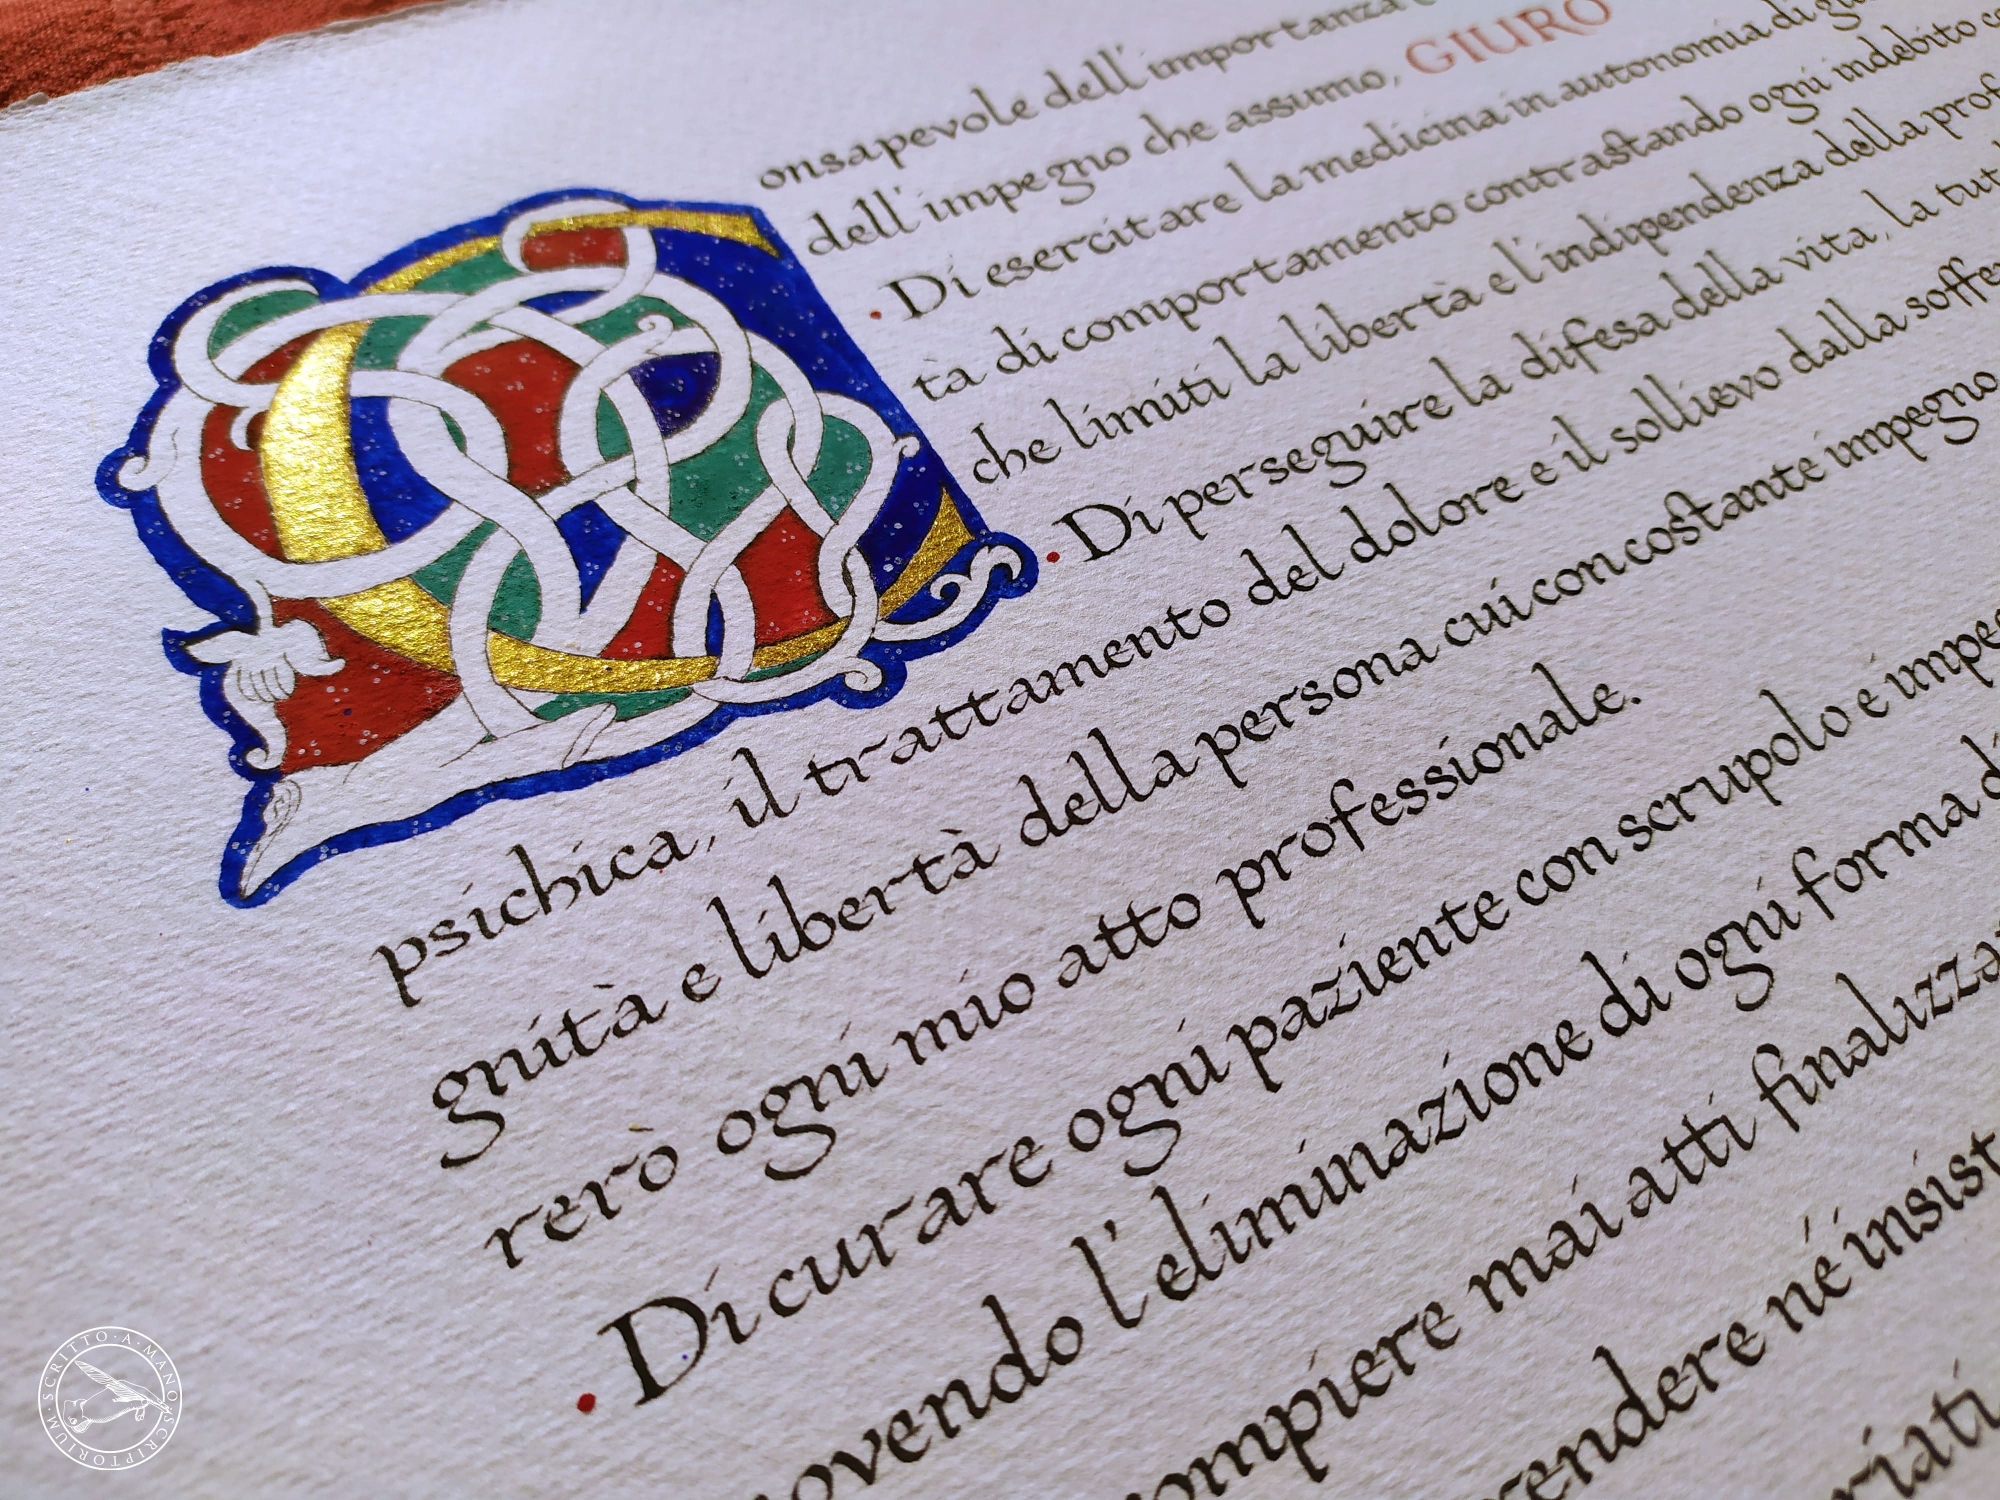 onsapevole dell'importanza
dell'impegno che assumo, GIURO
• Di esercitare la medicina in autonomia di
tà di comportamento contrastando ogni indebito
che limiti la libertà e l'indipendenza della
• Di perseguire la difesa della vita, la
psichica, il trattamento del dolore e il sollievo dalla
gnità e libertà della persona cui con costante impegno
rerò ogni mio atto professionale.
• Di curare ogni paziente con scrupolo e
ovendo l'eliminazione di ogni forma
ompiere mai atti
rendere né
riati
SCRITTO·A·MANO·SCRIPTORIUM·